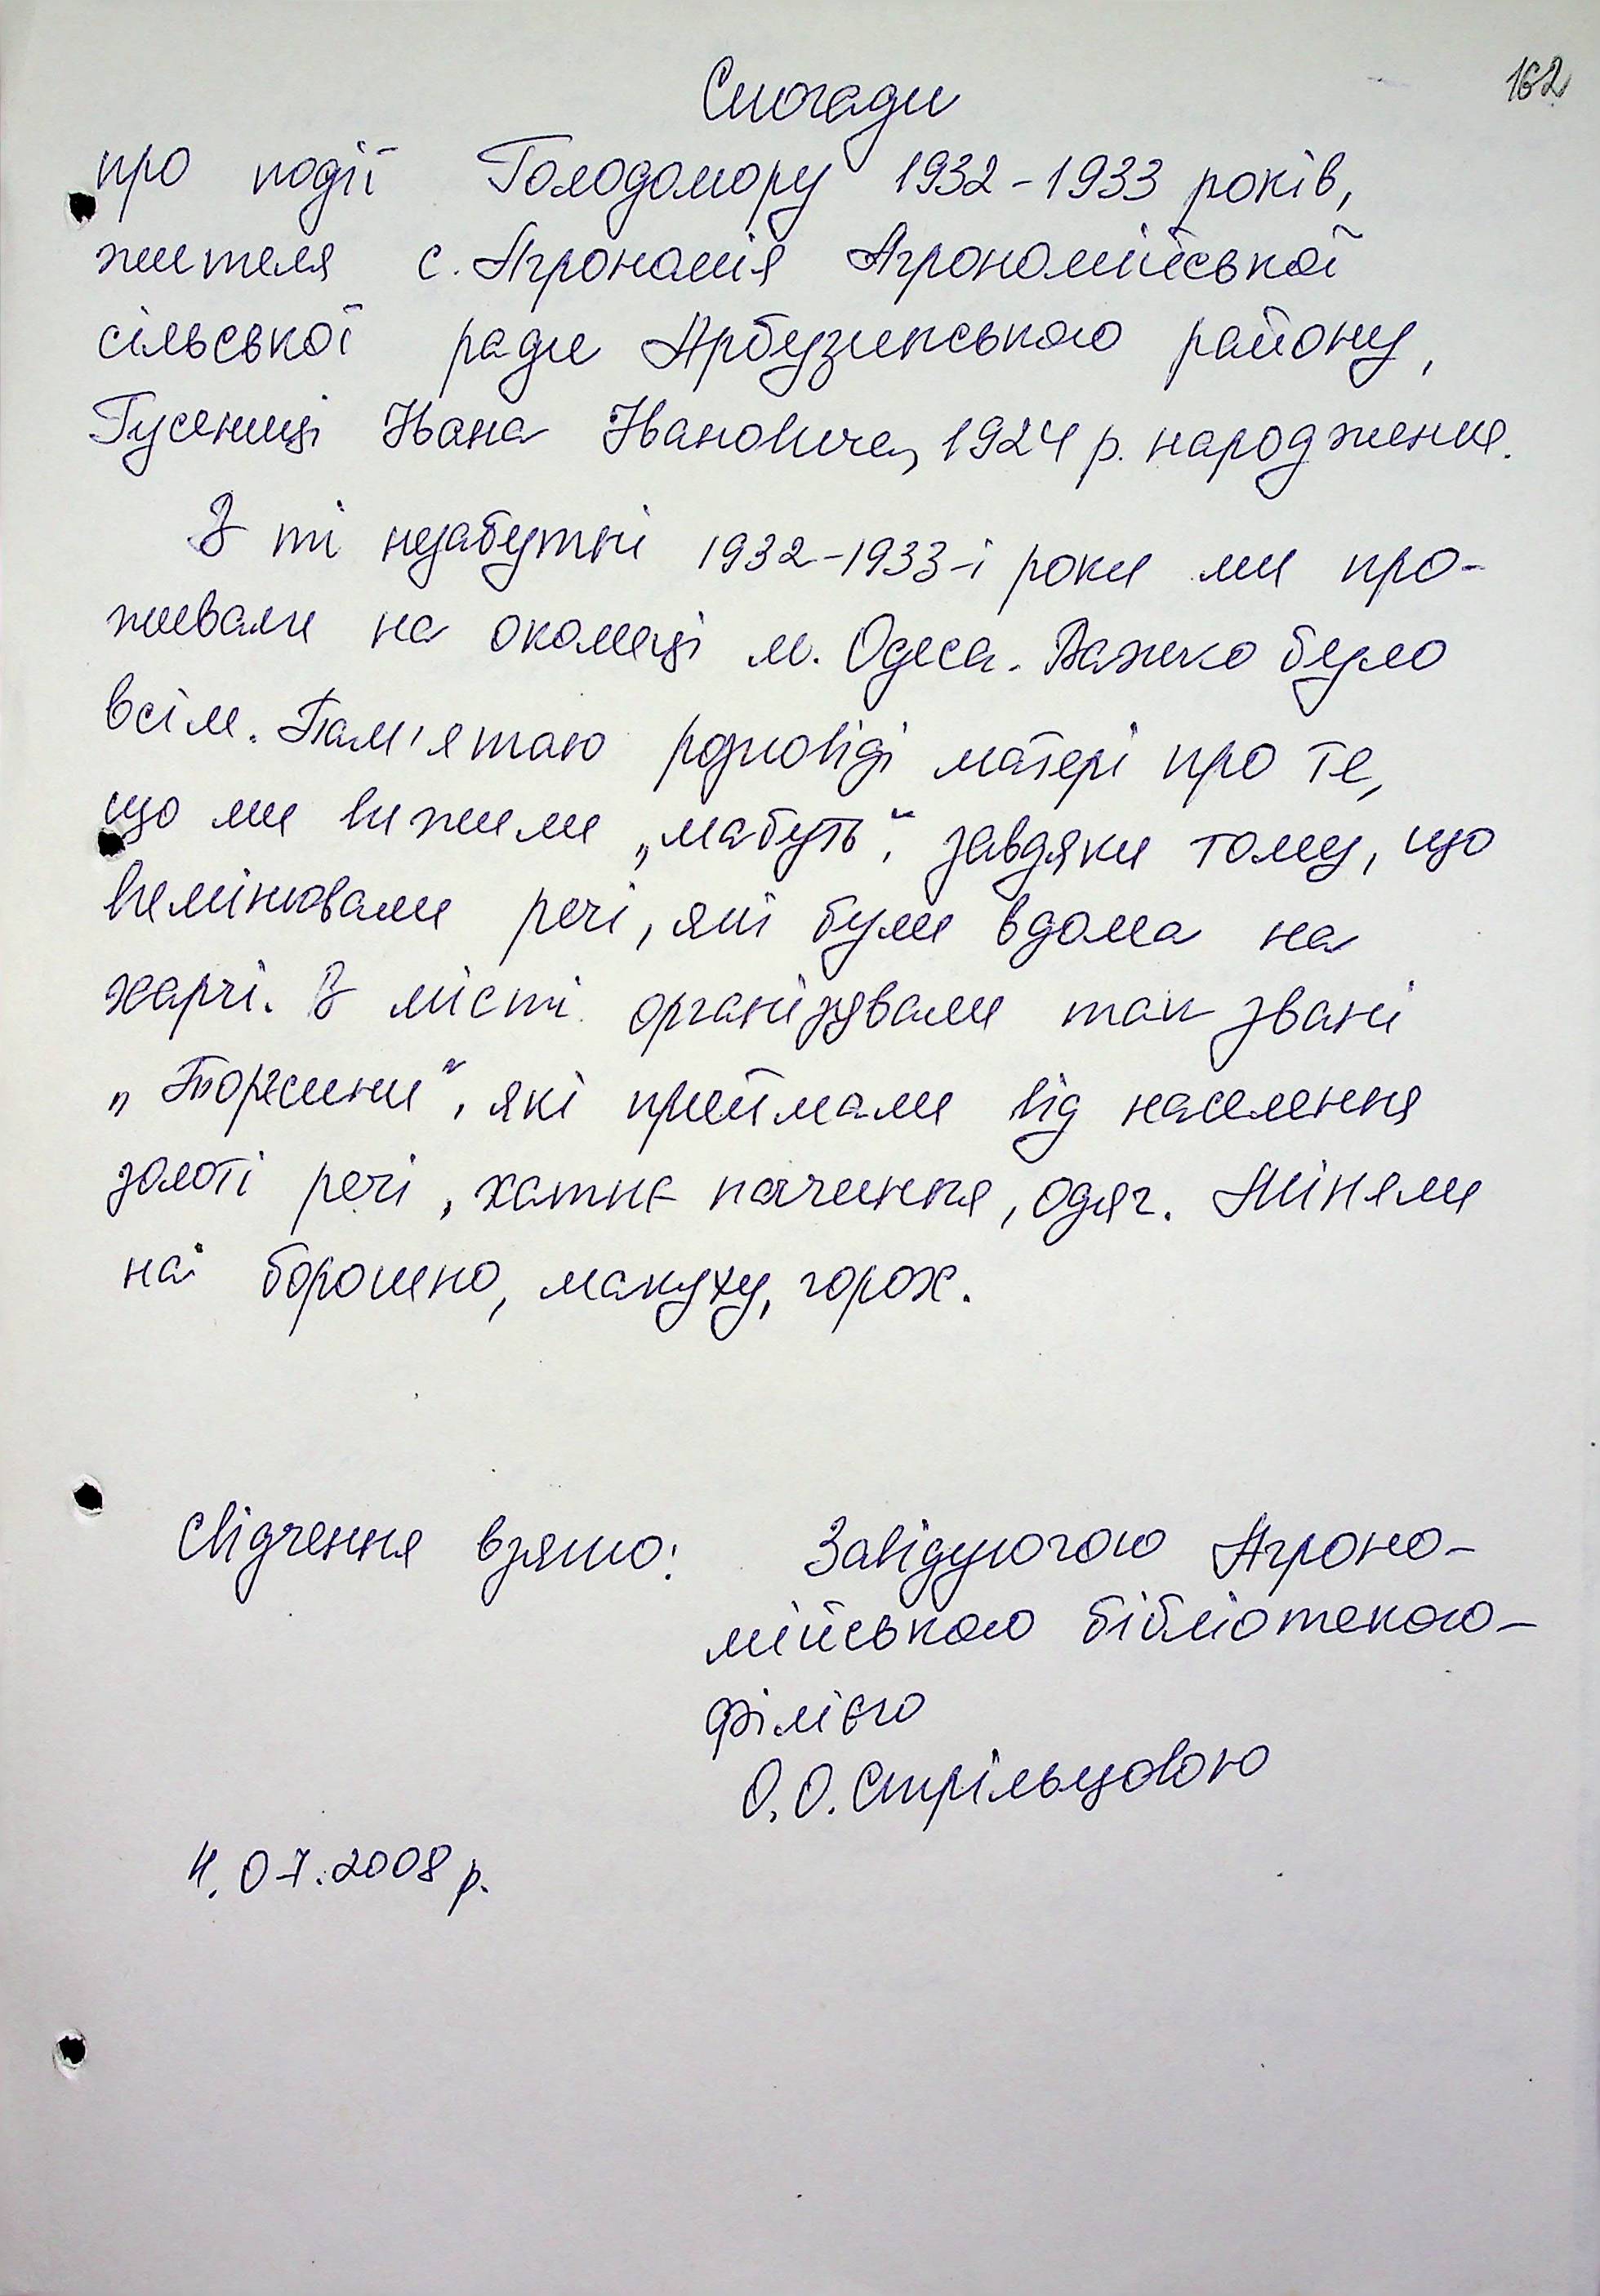 162
Спогади
про події Голодомору 1932-1933 років,
жителя с. Агрономія Агрономійської
сільської ради Арбузинського району,
Гусениці Івана Івановича, 1924 р. народження.
В ті незабутні 1932-1933-і роки ми про-
живали на околиці м. Одеса. Важко було
всім. Пам'ятаю розповіді матері про те,
що ми вижили „мабуть", завдяки тому, що
вимінювали речі, які були вдома на
харчі. В місті організували так звані
„Торгсини", які приймали від населення
золоті речі, хатнє начиння, одяг. Міняли
на борошно, макуху, горох.
Свідчення взято: Завідуючою Агроно-
мійською бібліотекою-
філією
О.О. Стрільцовою
4.07.2008 р.